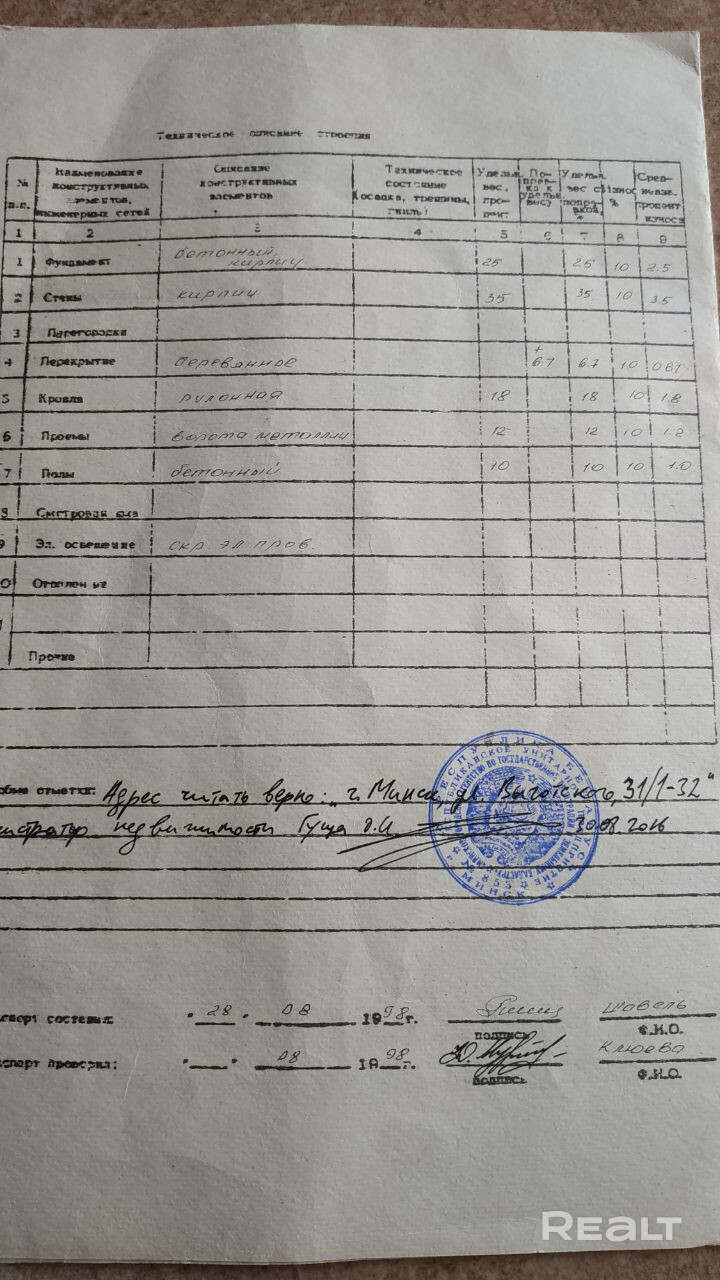 Техническое описание строения
№ п.п. Наименование конструктивных элементов, инженерных сетей Описание конструктивных элементов Техническое состояние (осадка, трещины, гниль) Удельн. вес, процент По-правка к удельн. весу Удельн. вес с поправкой, Износ % Сред- процент износа
1 2 3 4 5 6 7 8 9
1 Фундамент бетонный, кирпич 25 25 10 2.5
2 Стены кирпич 35 35 10 3.5
3 Перегородки
4 Перекрытие деревянное + 6.7 6.7 10 067
5 Кровля рулонная 18 18 10 1.8
6 Проемы ворота металлич 12 12 10 1.2
7 Полы бетонный 10 10 10 1.0
8
9 Эл. освещение скр. эл. пров.
0
Прочие
отметки: Адрес читать верно: "г. Минск, ул. Выготского, 31/1-32"
недвижимости Гуща О.И 30.08.2016
РЕСПУБЛИКА БЕЛАРУСЬ
МИНСК
№ 853
составил: "28" 08 1998г. Шавель
подпись Ф.И.О.
проверил: " " 08 1998г. Клюева
подпись Ф.И.О.
REALT